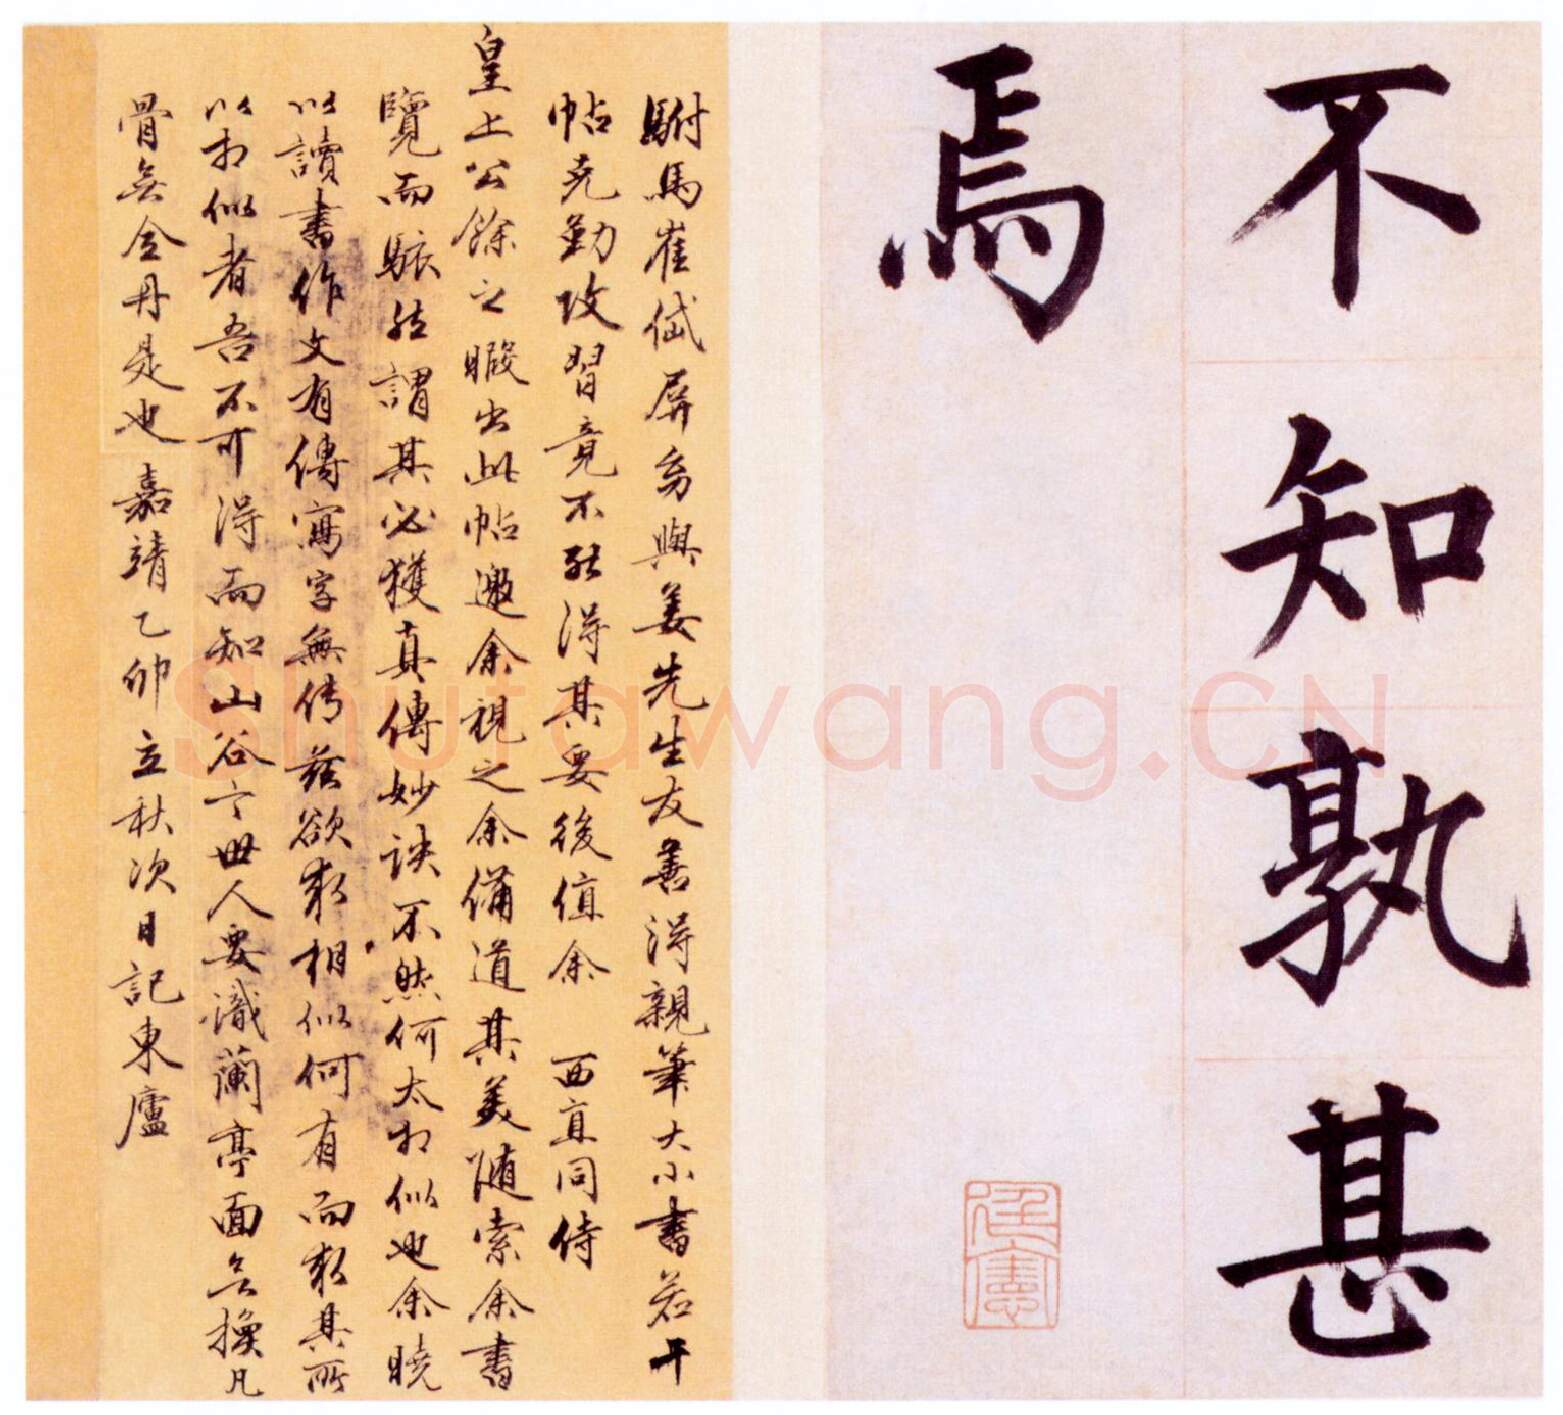 不知孰甚
焉
駙馬崔岱屏翁與姜先生友善得親筆大小書若干
帖克勤攻習竟不能得其要後值余 西直同侍
皇上公餘之暇出此帖邀余視之余備道其美随索余書
覽而駭然謂其必獲真傳妙訣不然何太相似也余曉
以讀書作文有傳寫字無传茲欲求相似何有而求其所
以相似者吾不可得而知山谷云世人要識蘭亭面無換凡
骨無金丹是也嘉靖乙卯立秋次日記東廬
Shufawang.CN